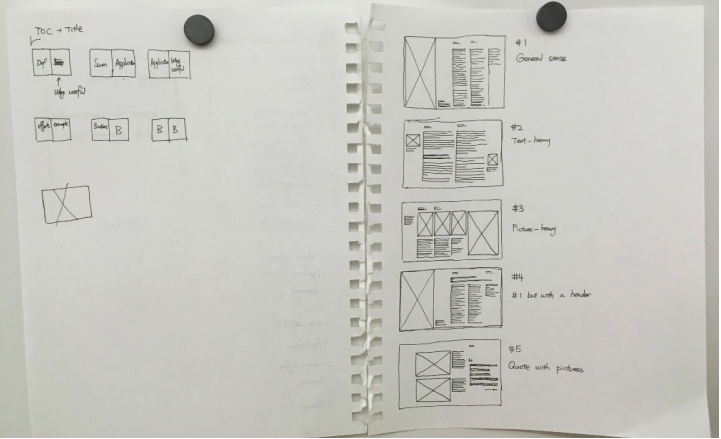 TOC + Title
Def
Why useful
Scum Application
Application Why useful
efforts example
B
B B
#1
General sense
#2
Text-heavy
#3
Picture-heavy
#4
#1 but with a header
#5
Quote with pictures